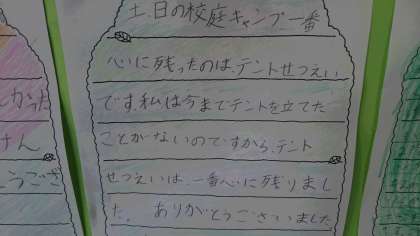 土、日の校庭キャンプ、一番
心に残ったのは、テントせつえい
です。私は今までテントを立てた
ことがないのですから、テント
せつえいは、一番心に残りまし
た。 ありがとうございました
かった
けん
うござ